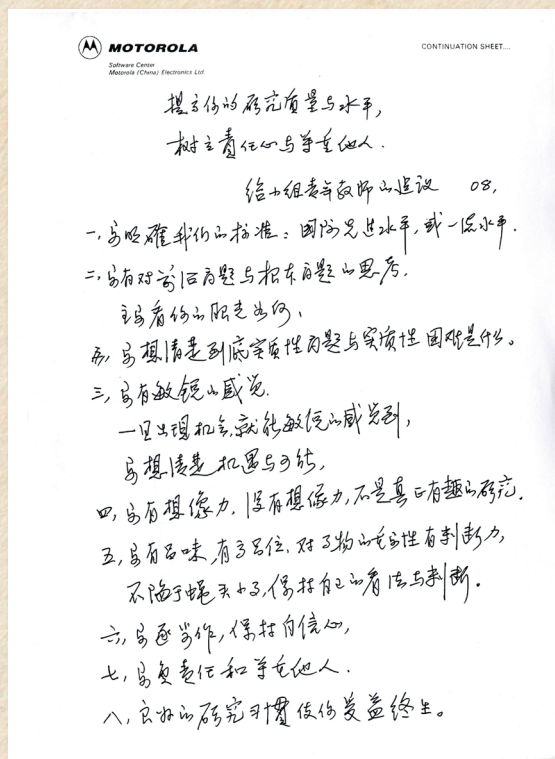 MOTOROLA
CONTINUATION SHEET....
Software Center
Motorola (China) Electronics Ltd.
提高你的研究质量与水平,
树立责任心与尊重他人.
给小组青年教师的建议 08,
一,要明确我们的标准:国际先进水平,或一流水平.
二,要有对前沿问题与根本问题的思考,
主要看你的眼光如何,
要想清楚到底实质性问题与实质性困难是什么。
三,要有敏锐的感觉.
一旦出现机会,就能敏锐的感觉到,
要想清楚机遇与可能,
四,要有想像力,没有想像力,不是真正有趣的研究.
五,要有品味,有高品位,对事物的重要性有判断力,
不陷于蝇头小事,保持自己的看法与判断。
六,要合作,保持自信心,
七,要负责任和尊重他人.
八,良好的研究习惯使你受益终生。